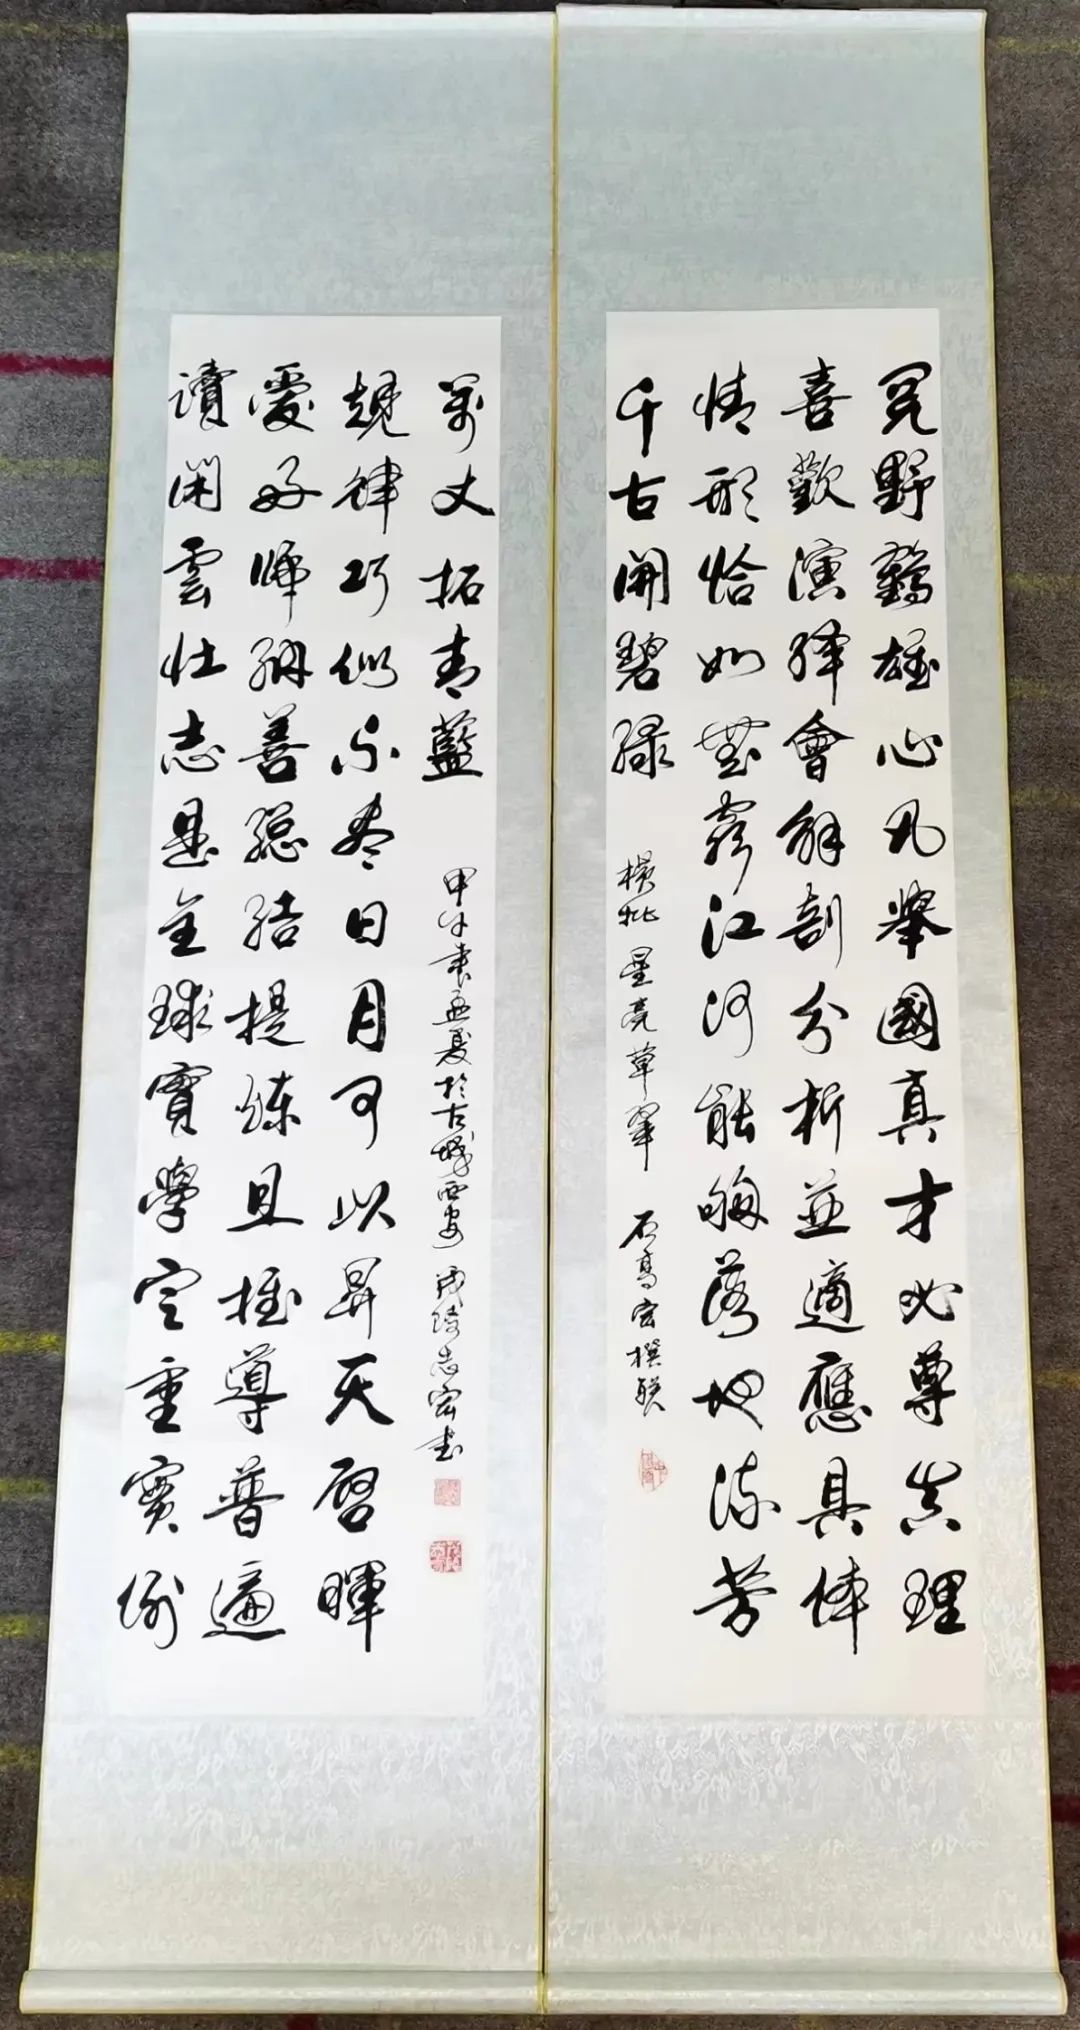 野鶴雄心凡舉國真才必尊真理
喜歡演繹會解剖分析並適應具体
情形恰如無窮江河能夠落地流芳
千古開碧緑
橫批 星亮草翠 石高宏撰联
讀閑雲壯志是全球實學定重實例
愛好歸納善總结提煉且推導普遍
規律巧似不盡日月可以昇天啓暉
萬丈拓青藍
甲午年孟夏於古城西安 茂陵志宏書